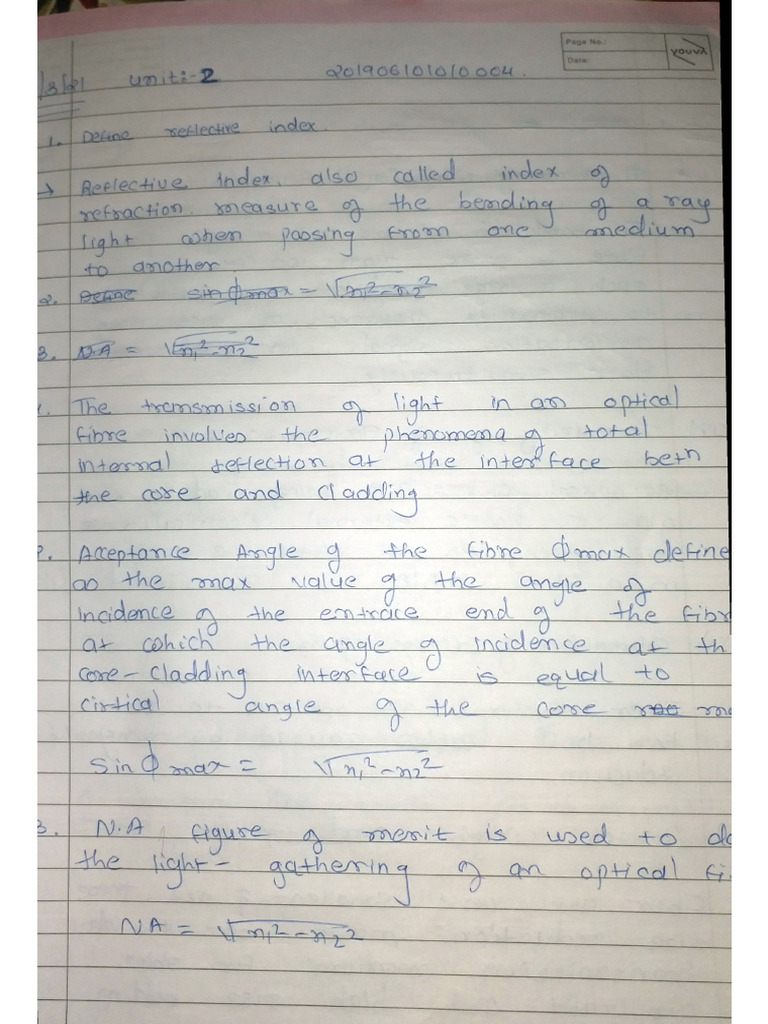 Page No.:
Date:
youva
/3/21 unit:-2 201906101010004.
1. Define reflective index.
→ Reflective index, also called index of
refraction. measure of the bending of a ray
light when passing from one medium
to another
2. Define sinϕmax = √n₁²-n₂²
3. N.A = √n₁²-n₂²
1. The transmission of light in an optical
fibre involves the phenomena of total
internal reflection at the interface betn
the core and cladding
2. Acceptance Angle of the fibre ϕmax define
as the max value of the angle of
incidence of the entrace end of the fibr
at which the angle of incidence at th
core-cladding interface is equal to
cirtical angle of the core
sinϕmax = √n₁²-n₂²
3. N.A figure of merit is used to de
the light-gathering of an optical fi
NA = √n₁²-n₂²